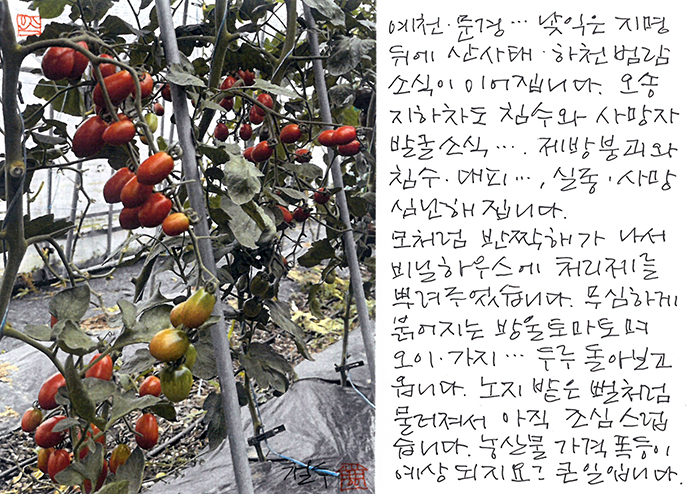 예천·문경… 낯익은 지명
뒤에 산사태·하천범람
소식이 이어집니다. 오송
지하차도 침수와 사망자
발굴소식…. 제방붕괴와
침수·대피…, 실종·사망
심난해집니다.
모처럼 반짝해가 나서
비닐하우스에 처리제를
뿌려주었습니다. 무심하게
붉어지는 방울토마토며
오이·가지… 두루 돌아보고
옵니다. 노지 밭은 뻘처럼
물러져서 아직 조심스럽
습니다. 농산물 가격 폭등이
예상되지요? 큰일입니다.